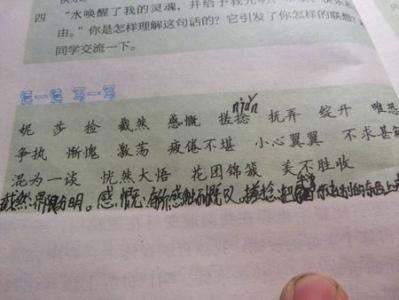 四 “水唤醒了我的灵魂，并给予我光明、
由。”你是怎样理解这句话的？它引发了你怎样的联想？
同学交流一下。
读一读 写一写
niǎn
妮 莎 捡 截然 感慨 搓捻 抚弄 绽开 唯恐
争执 惭愧 激荡 疲倦不堪 小心翼翼 不求甚解
混为一谈 恍然大悟 花团锦簇 美不胜收
截然:界限分明。感慨:有所感触而慨叹。搓捻:把